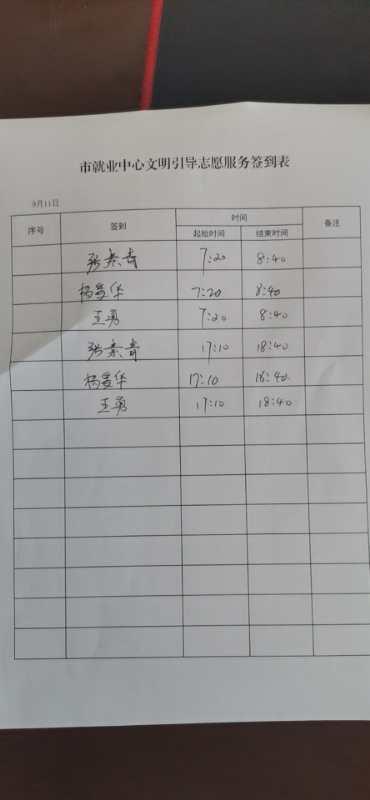 市就业中心文明引导志愿服务签到表
9月11日
序号 签到 时间 备注
起始时间 结束时间
张素青 7:20 8:40
杨爱华 7:20 8:40
王勇 7:20 8:40
张素青 17:10 18:40
杨爱华 17:10 18:40
王勇 17:10 18:40